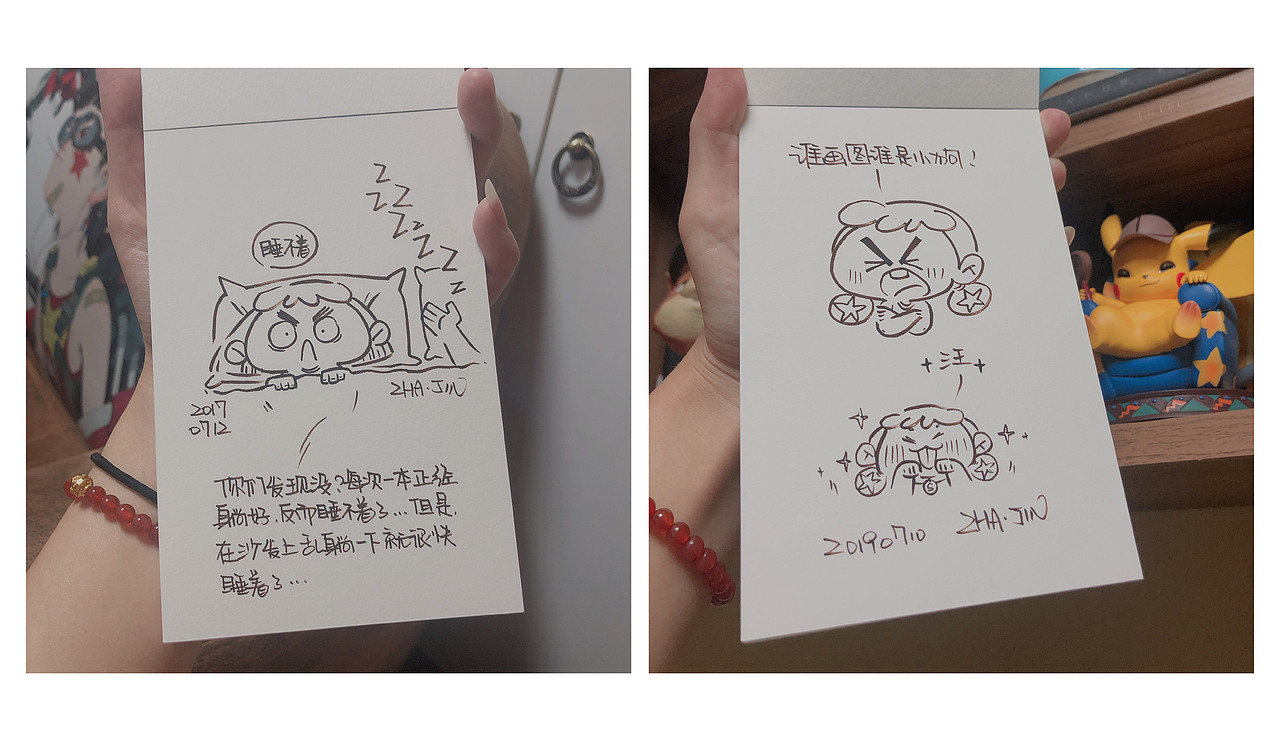 Z
Z
Z
Z
Z
Z
Z
睡不着
ZHA·JIN
2017
0712
你们发现没?每次一本正经
躺好,反而睡不着了...但是,
在沙发上乱躺一下就很快
睡着了...
谁画图谁是小狗!
汪
20190710
ZHA·JIN